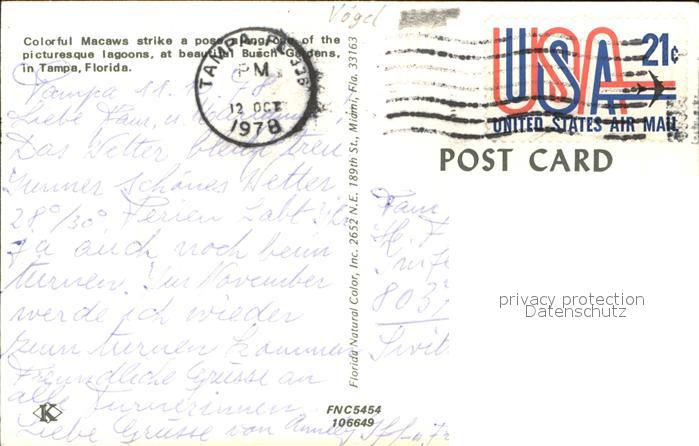 Vögel
Colorful Macaws strike a pose along one of the
picturesque lagoons, at beautiful Busch Gardens,
in Tampa, Florida.
TAMPA, FL 336
PM
12 OCT
1978
USA 21¢
UNITED STATES AIR MAIL
POST CARD
Tampa 11. 78
Liebe Fam. u.
Das Wetter bleibt treu
immer schönes Wetter
28°/30°. Ferien habt Ihr
ja auch noch beim
turnen. Im November
werde ich wieder
zum turnen kommen
Freundliche Grüsse an
alle Turnerinnen
Liebe Grüsse von
Florida Natural Color, Inc. 2652 N.E. 189th St., Miami, Fla. 33163
Fam
803
privacy protection
Datenschutz
K
FNC5454
106649